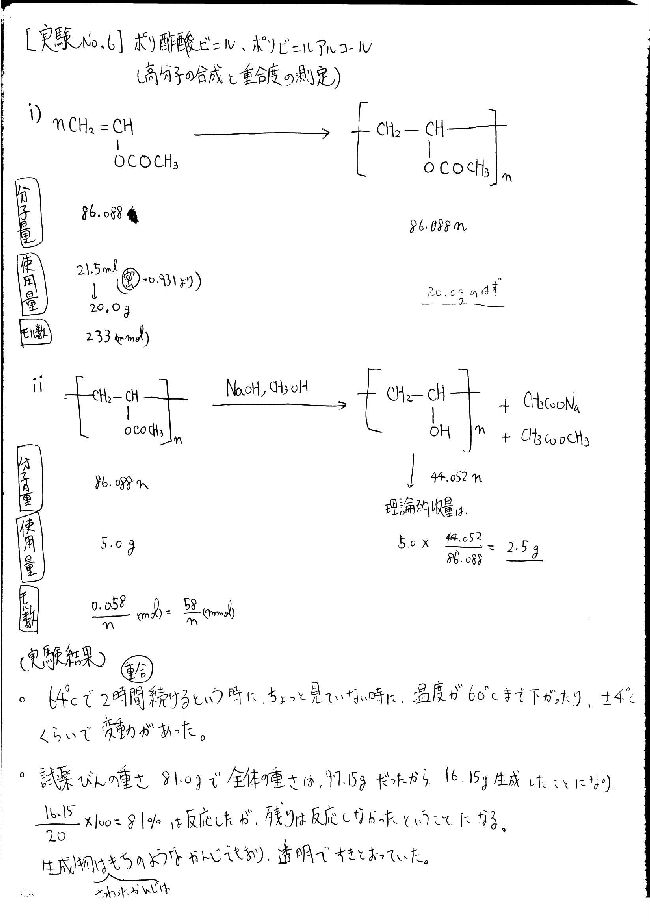 [実験No.6] ポリ酢酸ビニル、ポリビニルアルコール
(高分子の合成と重合度の測定)
i) nCH₂=CH → [CH₂-CH]n
OCOCH₃ OCOCH₃
分子量 86.088 86.088n
使用量 21.5ml (密→0.931より)
↓
20.0g 20.0gのはず
モル数 233(mmol)
ii [CH₂-CH]n NaOH, CH₃OH → [CH₂-CH]n + CH₃COONa
OCOCH₃ OH + CH₃COOCH₃
分子量 86.088n ↓ 44.052n
理論的収量は、
使用量 5.0g 5.0× 44.052/86.088 = 2.5g
モル数 0.058/n (mol) = 58/n (mmol)
(実験結果)
重合
。64℃で2時間続けるという時に、ちょっと見ていない時に、温度が60℃まで下がったり、±4℃
くらいで変動があった。
。試薬びんの重さ 81.0gで全体の重さは、97.15gだったから 16.15g生成したことになり
16.15/20 ×100=81% は反応したが、残りは反応しなかったということになる。
生成物はもちのようなかんじでもあり、透明ですきとおっていた。
さわったかんじは